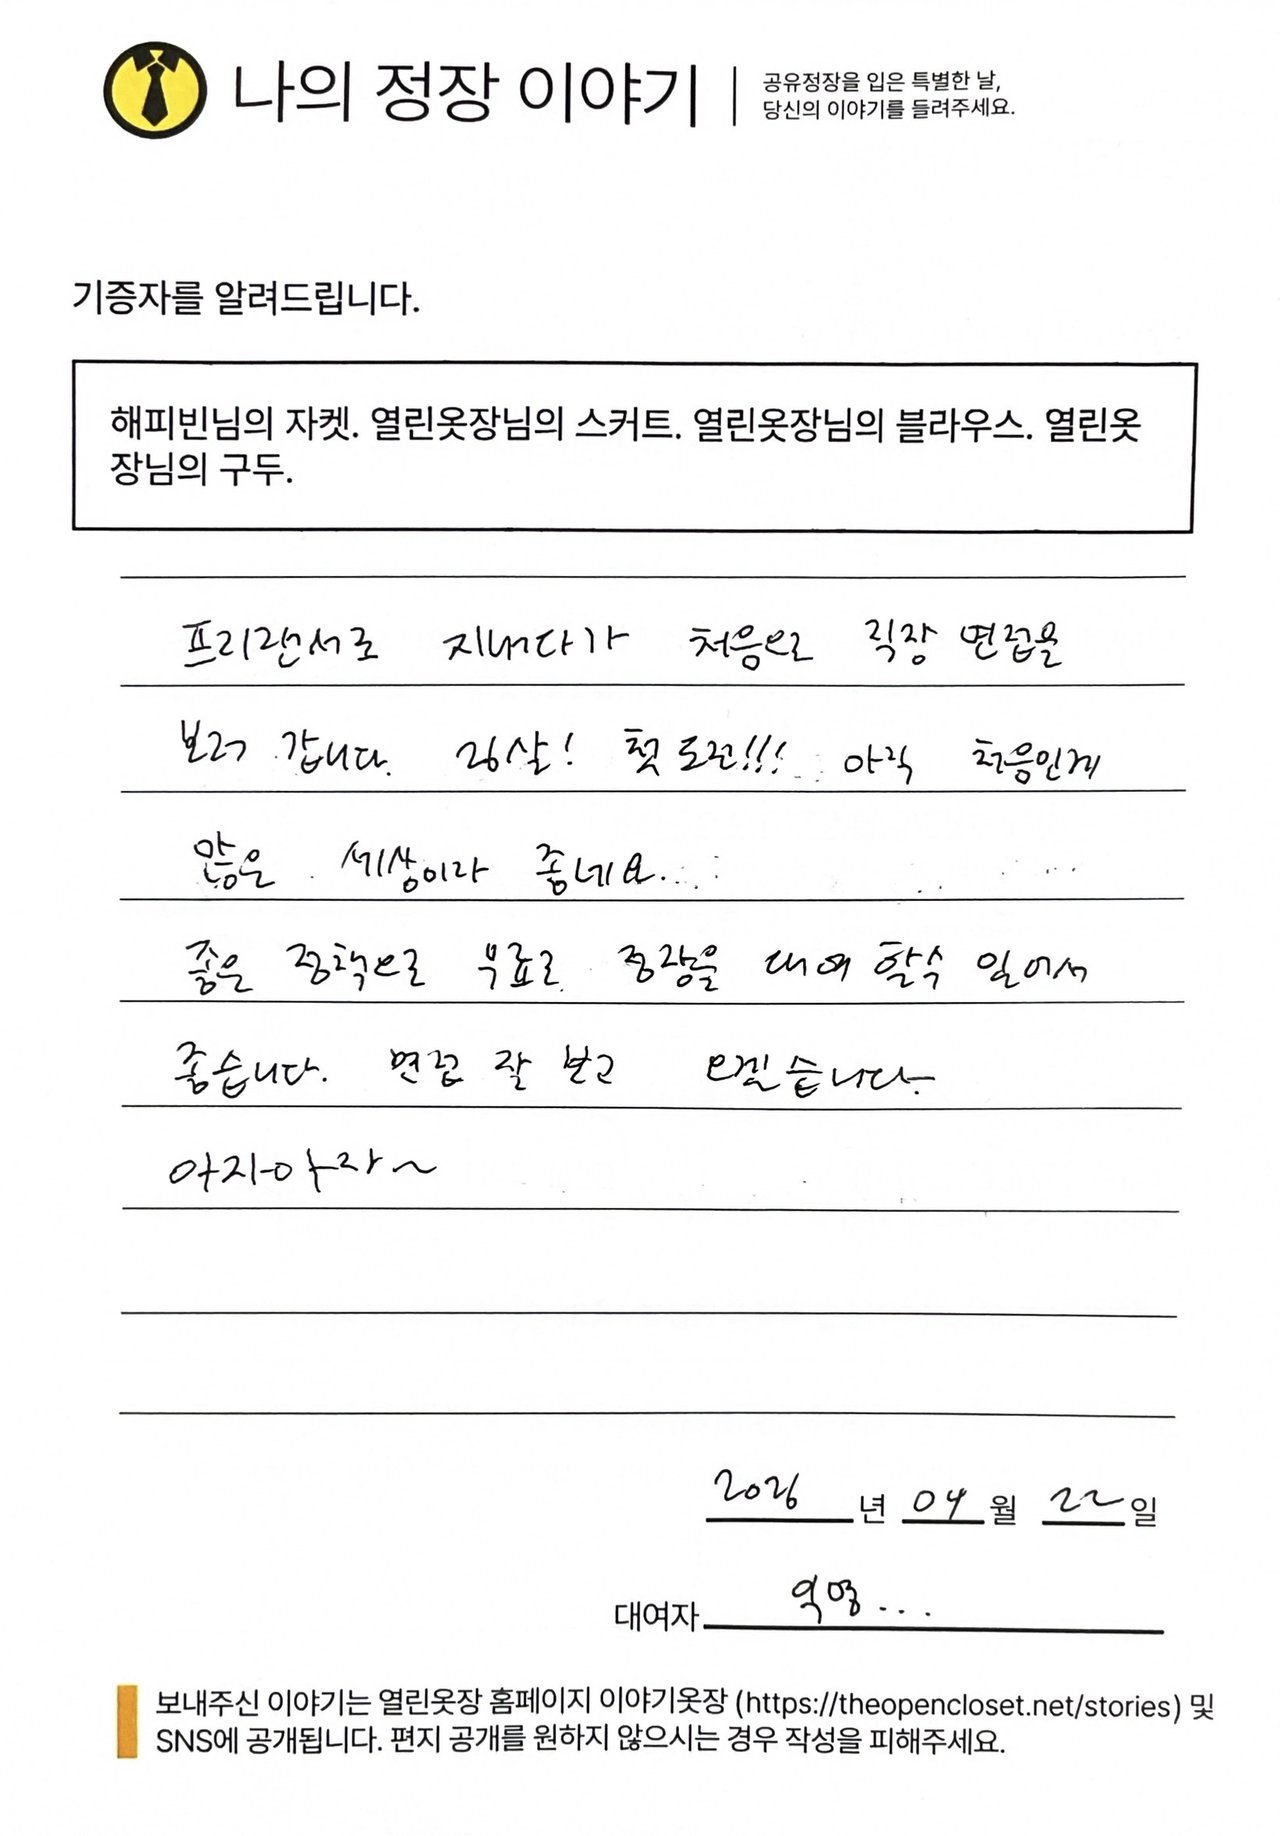 나의 정장 이야기
공유정장을 입은 특별한 날,
당신의 이야기를 들려주세요.
기증자를 알려드립니다.
해피빈님의 자켓. 열린옷장님의 스커트. 열린옷장님의 블라우스. 열린옷
장님의 구두.
프리랜서로 지내다가 처음으로 직장 면접을
보러 갑니다. 26살! 첫 도전!!! 아직 처음인게
많은 세상이라 좋네요...
좋은 정책으로 무료로 정장을 대여 할수 있어서
좋습니다. 면접 잘 보고 오겠습니다.
아자아자~
2026 년 04 월 22 일
대여자 익명...
보내주신 이야기는 열린옷장 홈페이지 이야기옷장 (https://theopencloset.net/stories) 및
SNS에 공개됩니다. 편지 공개를 원하지 않으시는 경우 작성을 피해주세요.